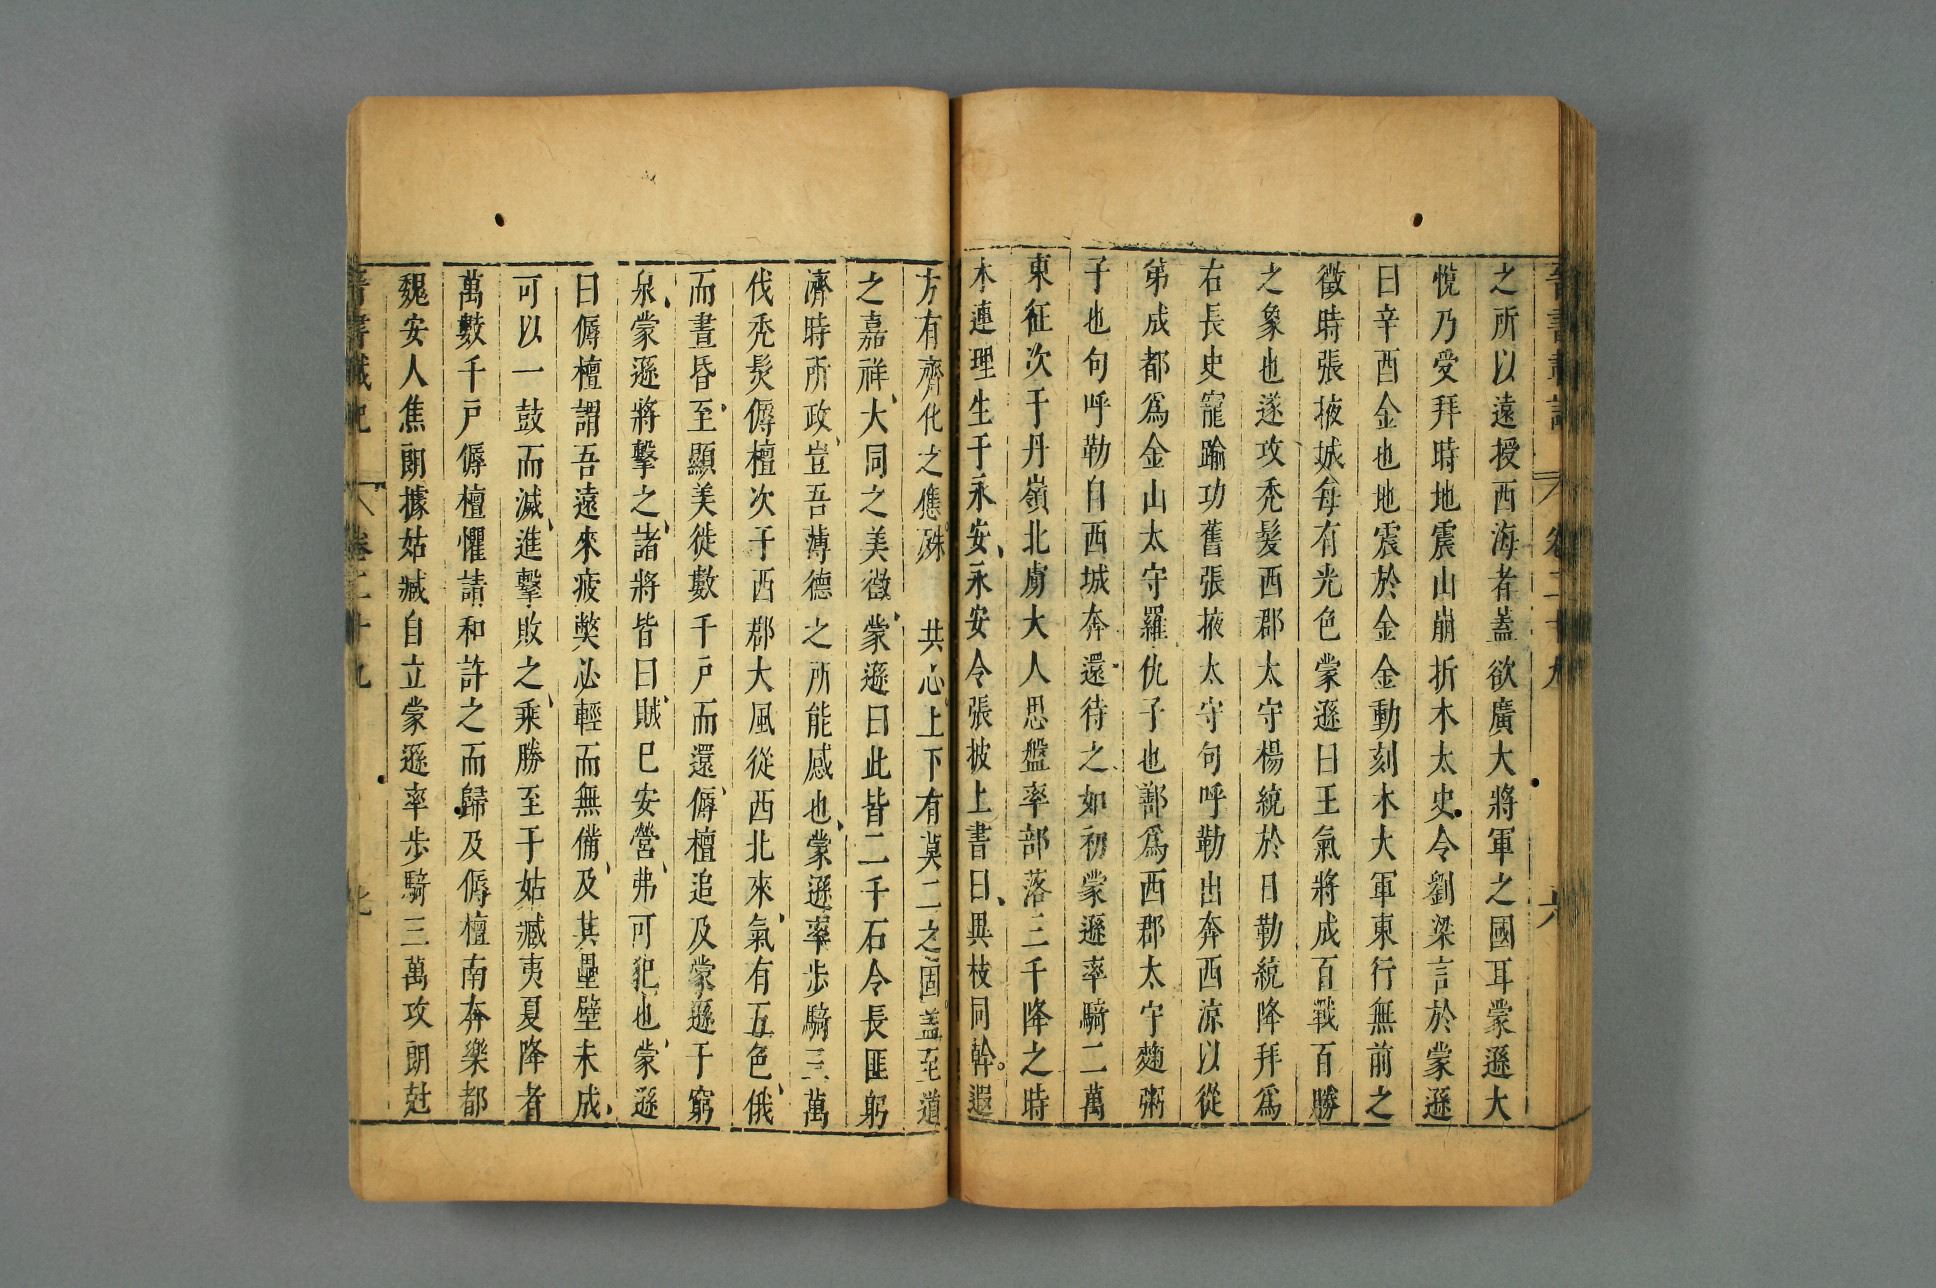 之所以遠授西海者蓋欲廣大將軍之國耳蒙遜大
悅乃受拜時地震山崩折木太史令劉梁言於蒙遜
曰辛酉金也地震於金金動刻木大軍東行無前之
徵時張掖城每有光色蒙遜曰王氣將成百戰百勝
之象也遂攻禿髮西郡太守楊統於日勒統降拜為
右長史寵踰功舊張掖太守句呼勒出奔西涼以從
弟成都爲金山太守羅仇子也鄯爲西郡太守麴粥
子也句呼勒自西城奔還待之如初蒙遜率騎二萬
東征次于丹嶺北虜大人思盤率部落三千降之時
木連理生于永安、永安令張披上書曰、異枝同幹。遐
方有齊化之應。殊　共心。上下有莫二之固。蓋至道
之嘉祥、大同之美徵、蒙遜曰此皆二千石令長匪躬
濟時所政、豈吾薄德之所能感也、蒙遜率步騎三萬
伐禿髮傉檀次于西郡大風從西北來、氣有五色、俄
而晝昏、至顯美徙數千戶而還、傉檀追及蒙遜于窮
泉、蒙遜將擊之、諸將皆曰、賊已安營、弗可犯也、蒙遜
曰傉檀謂吾遠來疲弊必輕而無備、及其壘壁未成、
可以一鼓而滅、進擊敗之、乘勝至于姑臧夷夏降者
萬數千戶傉檀懼請和許之而歸及傉檀南奔樂都
魏安人焦朗據姑臧自立蒙遜率步騎三萬攻朗尅
晉書載記　卷二十九　七